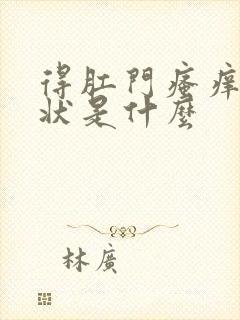 得肛門瘙痒
狀是什麼
林廣